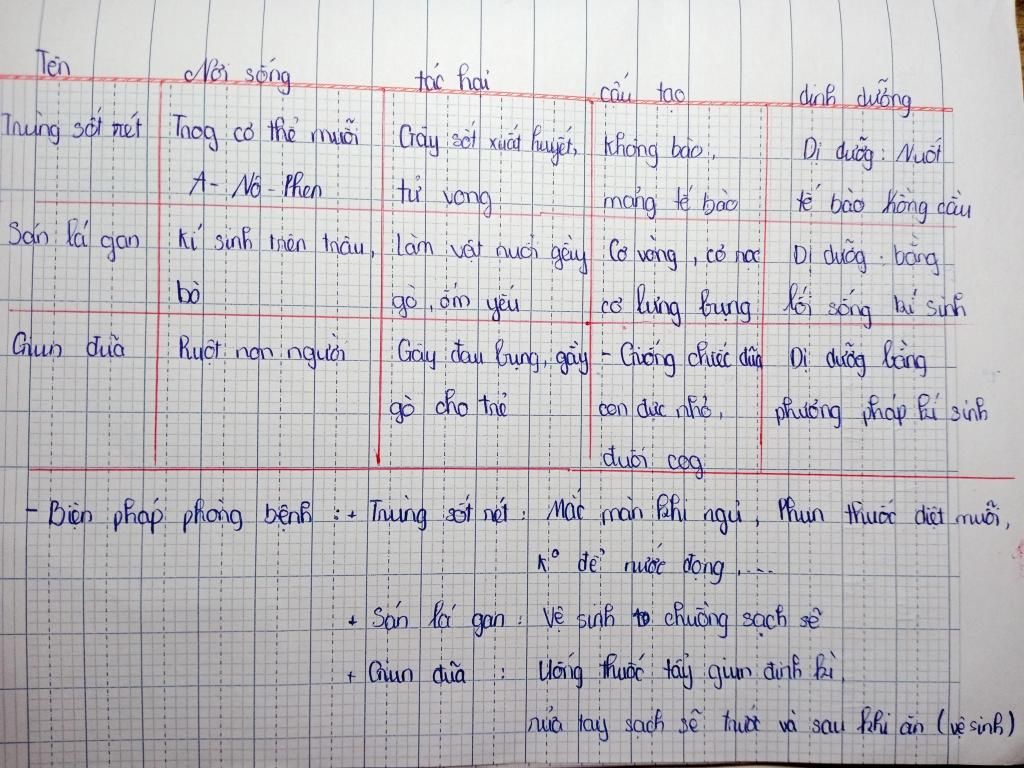 Tên Nơi sống tác hại cấu tạo dinh dưỡng
Trùng sốt rét Trog cơ thể muỗi Gây sốt xuất huyết, không bào, Dị dưỡg: Nuốt
A-Nô-Phen tử vong màng tế bào tế bào hồng cầu
Sán lá gan Kí sinh trên trâu, làm vật nuôi gầy Cơ vòng, cơ dọc Dị dưỡg: bằng
bò gò, ốm yếu cơ lưng bụng lối sống kí sinh
Giun đũa Ruột non người Gây đau bụng, gầy - Giống chiếc đũa Dị dưỡg bằng
gò cho trẻ con đực nhỏ, phương pháp kí sinh
đuôi cog
- Biện pháp phòng bệnh: + Trùng sốt rét: Mắc màn khi ngủ, Phun thuốc diệt muỗi,
K° để nước đọng,...
+ Sán lá gan: Vệ sinh chuồng sạch sẽ
+ Giun đũa: Uống thuốc tẩy giun định kì,
rửa tay sạch sẽ trướt và sau khi ăn (vệ sinh)